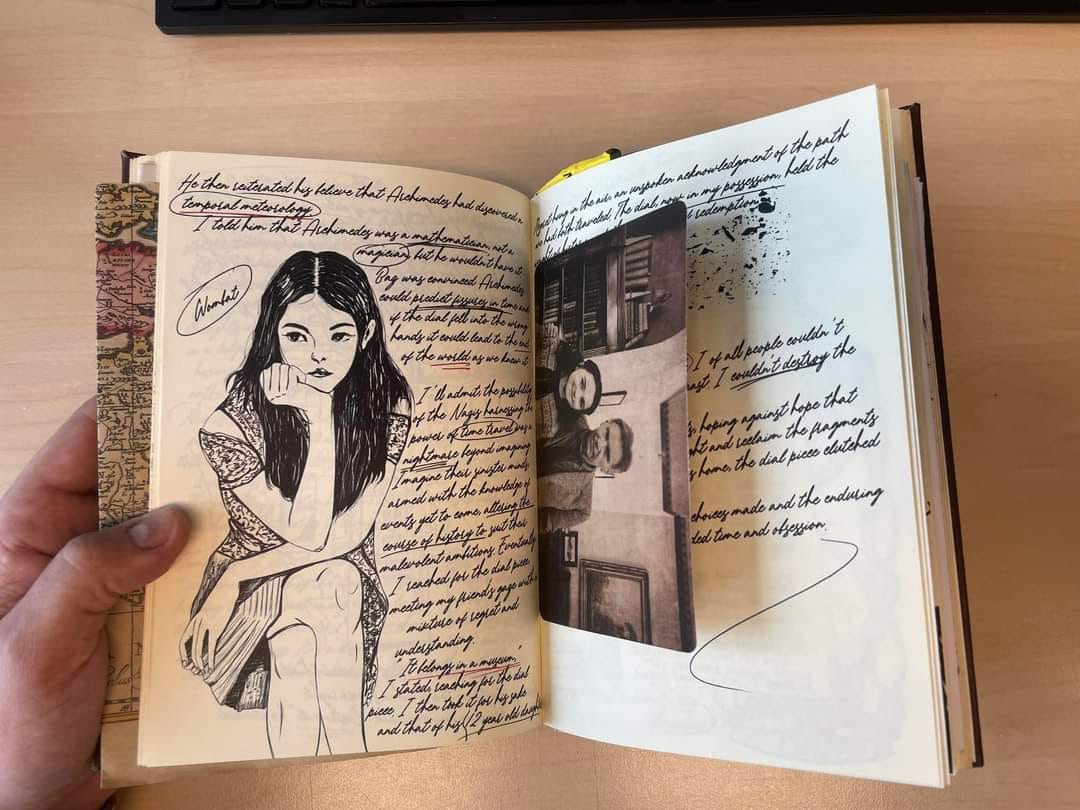 He then reiterated his believe that Archimedes had discovered a
temporal meteorology
I told him that Archimedes was a mathematician, not a
magician, but he wouldn't have it
Wombat
Baz was convinced Archimedes
could predict fissures in time and
if the dial fell into the wrong
hands it could lead to the end
of the world as we knew it
I'll admit, the possibility
of the Nazis harnessing the
power of time travel was a
nightmare beyond imagining
Imagine their sinister minds
armed with the knowledge of
events yet to come, altering the
course of history to suit their
malevolent ambitions. Eventually
I reached for the dial piece,
meeting my friend's gaze with a
mixture of regret and
understanding.
"It belongs in a museum,"
I stated, reaching for the dial
piece. I then took it for his sake
and that of his 12 year old
Regret hung in the air, an unspoken acknowledgment of the path
we had both traveled. The dial, now in my possession, held the
redemption
I of all people couldn't
I couldn't destroy the
hoping against hope that
and reclaim the fragments
home, the dial piece clutched
choices made and the enduring
time and obsession.